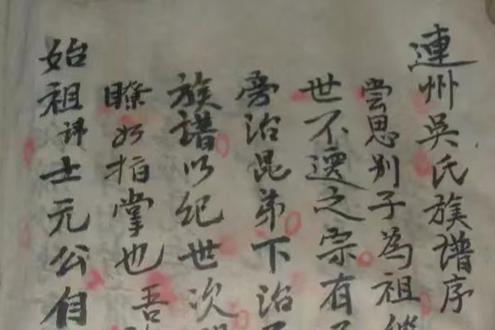 連州吳氏族譜序
嘗思别子為祖繼
世不遷之宗有
旁治昆弟下治子
族譜以紀世次
瞭如指掌也吾
始祖諱士元公自